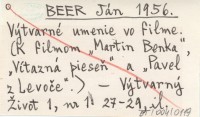 BEER Ján 1956.
Výtvarné umenie vo filme.
(K filmom „Martin Benka",
„Víťazná pieseň" a „Pavel
z Levoče".) — Výtvarný
Život 1, nr 1: 27-29, il.